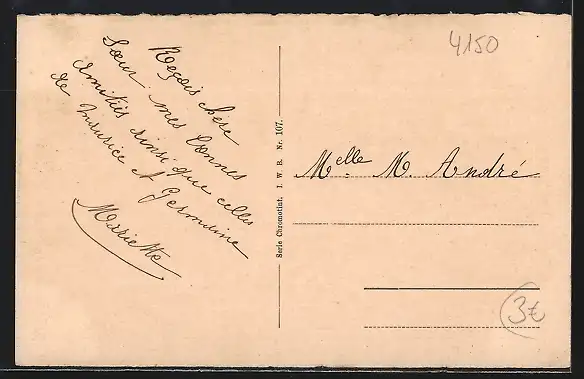 Reçois chère
Sœur mes bonnes
amitiés ainsi que celles
de Maurice et Germaine
Mariette
Serie Chromotint. I. W. B. Nr. 107.
4150
Melle M. André
3€